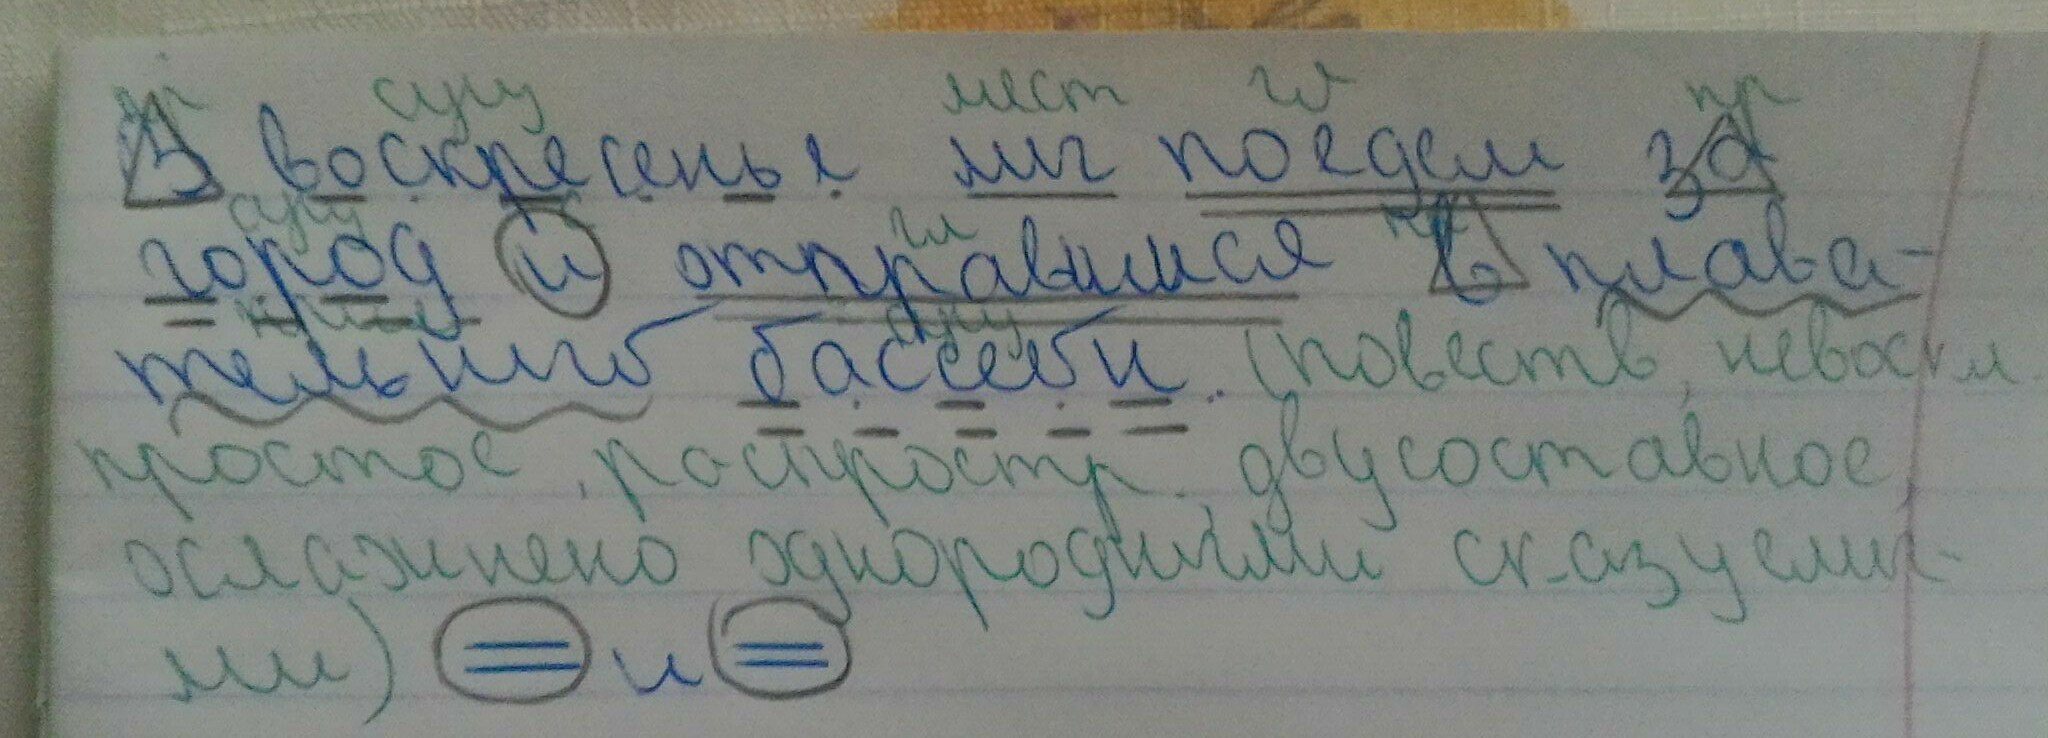 пр сущ мест гл пр
В воскресенье мы поедем за
сущ с гл пр
город и отправимся в плава-
прил сущ
тельный бассейн. (повеств, невоскл.
простое, распростр. двусоставное,
осложнено однородными сказуемы-
ми) и